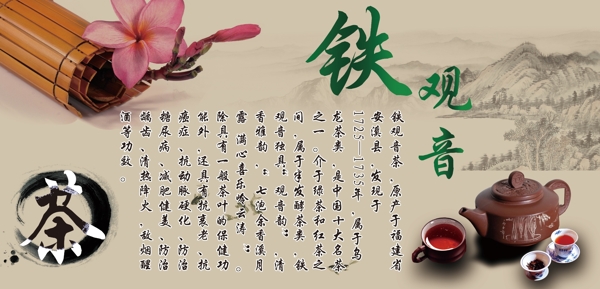 铁观音
铁观音茶，原产于福建省
安溪县，发现于
1725—1735年，属于乌
龙茶类，是中国十大名茶
之一。介于绿茶和红茶之
间，属于半发酵茶类，铁
观音独具“观音韵”，清
香雅韵，“七泡余香溪月
露 满心喜乐岭云涛”。
除具有一般茶叶的保健功
能外，还具有抗衰老、抗
癌症、抗动脉硬化、防治
糖尿病、减肥健美、防治
龋齿、清热降火，敌烟醒
酒等功效。
茶